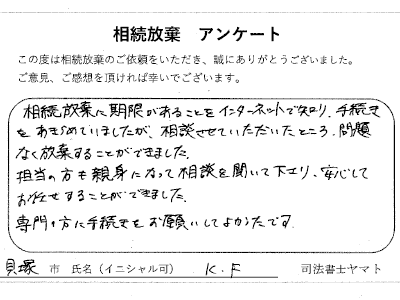 相続放棄 アンケート
この度は相続放棄のご依頼をいただき、誠にありがとうございました。
ご意見、ご感想を頂ければ幸いでございます。
相続放棄に期限があることをインターネットで知り、手続き
をあきらめていましたが、相談させていただいたところ、問題
なく放棄することができました。
担当の方も親身になって相談を聞いて下エり、安心して
お任せすることができました。
専門の方に手続きをお願いしてよかったです。
貝塚 市 氏名（イニシャル可） K.F 司法書士ヤマト